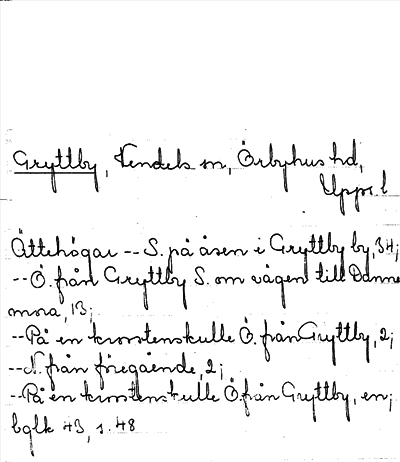 Gryttby, Vendels sn, Örbyhus hd,
Uppl.
Ättehögar -- S. på åsen i Gryttby by, 34;
-- Ö. från Gryttby S. om vägen till Danne
mora, 13;
-- På en krosstenskulle Ö. från Gryttby, 2;
-- N. från föregående, 2;
-- På en krosstenskulle Ö. från Gryttby, en;
bglk 43, s. 48